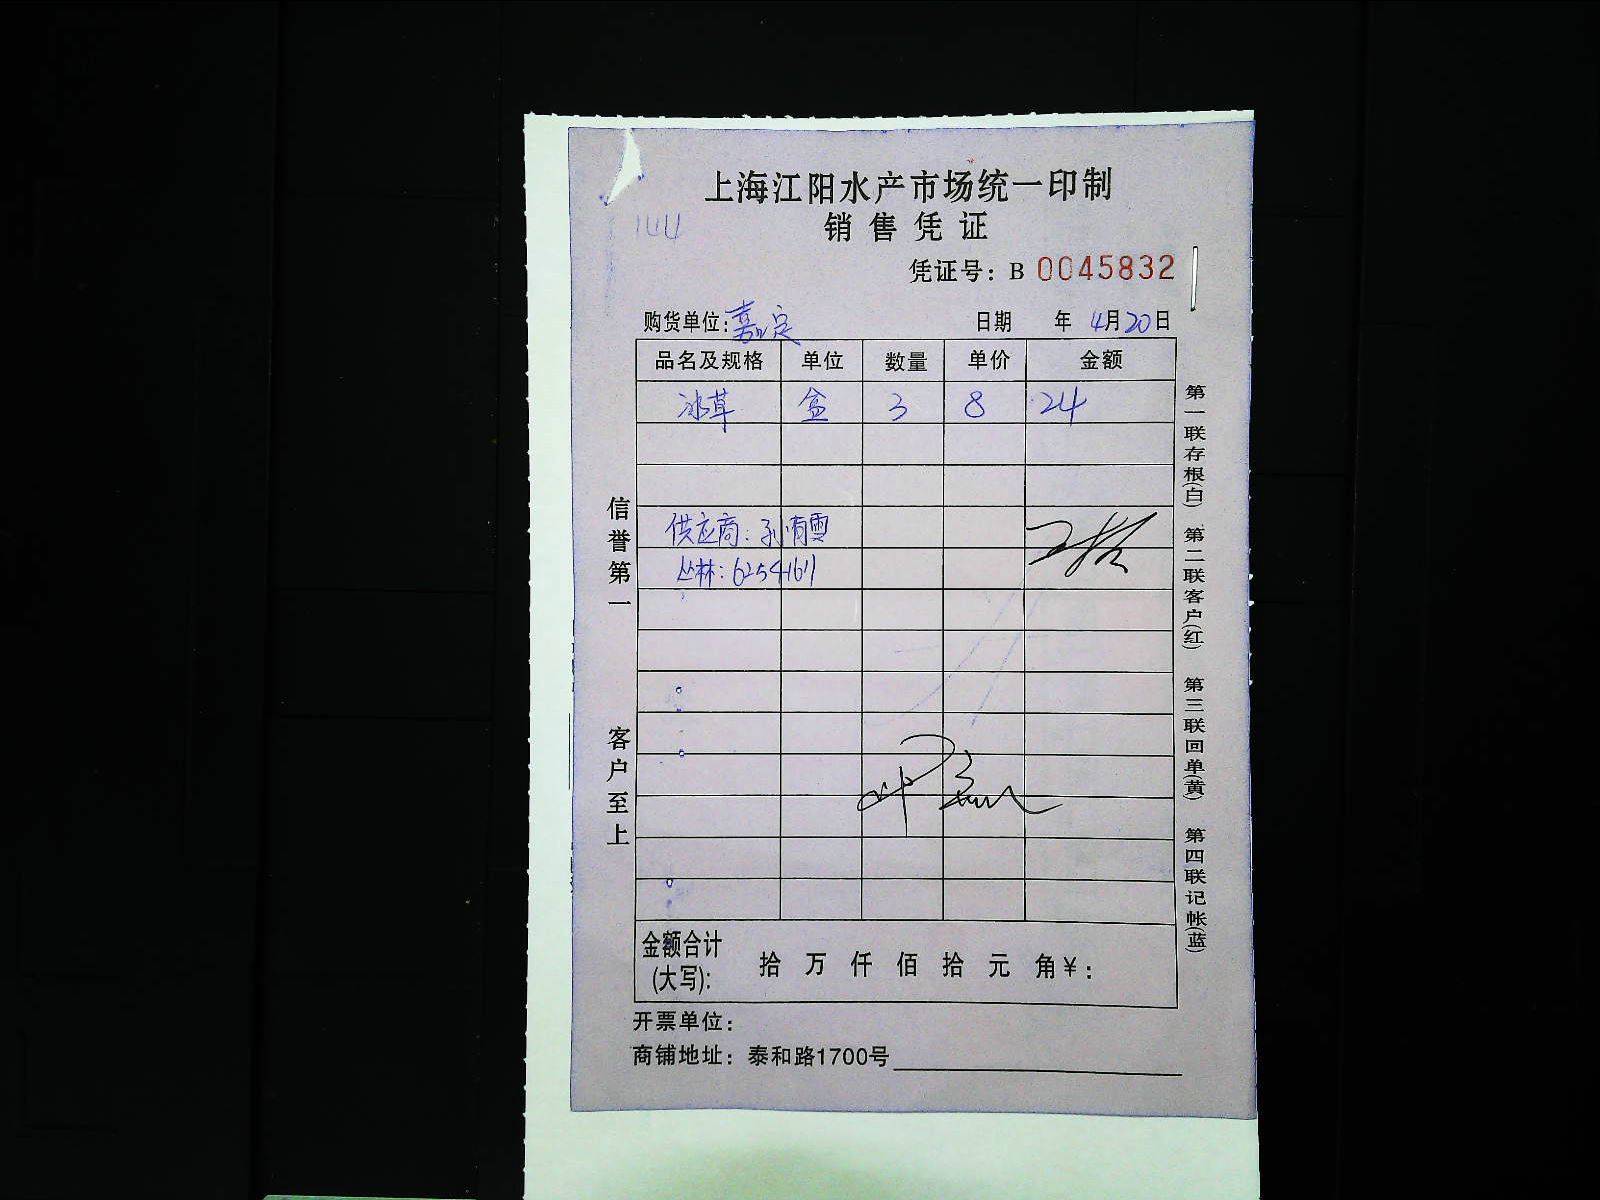 上海江阳水产市场统一印制
销售凭证
144
凭证号：B 0045832
购货单位：嘉定 日期 年 4月20日
品名及规格 单位 数量 单价 金额
冰草 盒 3 8 24
供应商：孙肖雪
丛林：6254161
信誉第一 客户至上
第一联存根(白) 第二联客户(红) 第三联回单(黄) 第四联记帐(蓝)
金额合计
(大写)： 拾 万 仟 佰 拾 元 角¥：
开票单位：
商铺地址：泰和路1700号